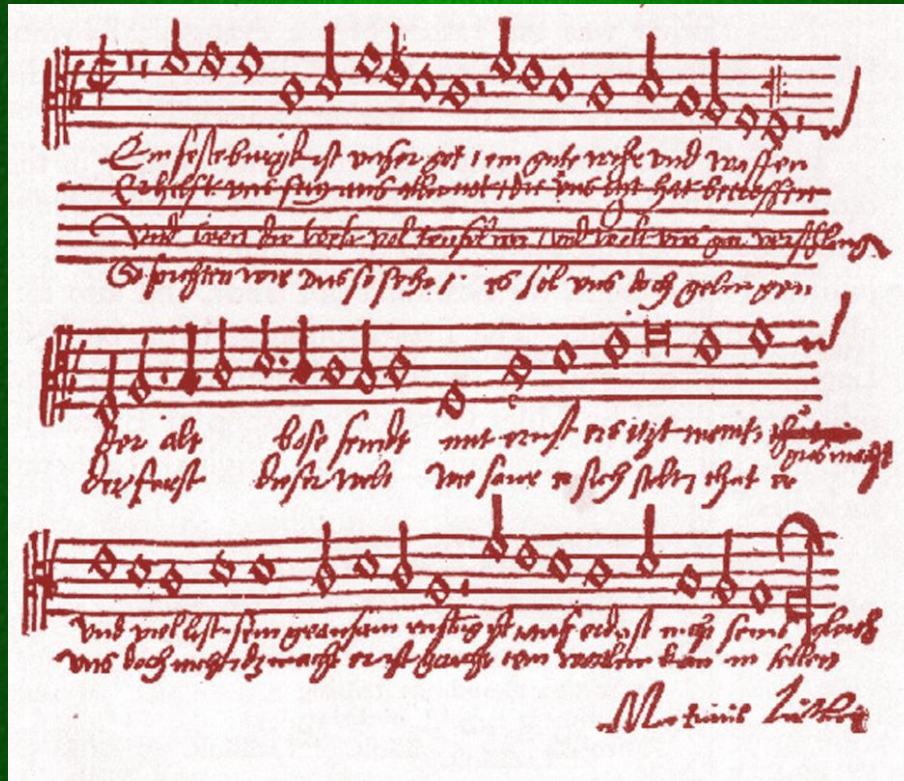 Ein festeburgk ist unser got / ein gute wehr und waffen
Er hilfft uns frey aus aller not / die uns itzt hat betroffen
Und wen die welt vol teufel wer / und wolt uns gar verschling
So furchten wir uns so sehr / es sol uns doch gelingen
der alt bose feindt mit ernst ers itzt meint
gros macht
der furst dieser welt wie saur er sich stelt / that er
Und viel list sein grausam rustung ist auf erd ist nicht seins gleich
uns doch nicht / dz macht er ist gericht ein wortlein kan in fellen
Martinus Luther